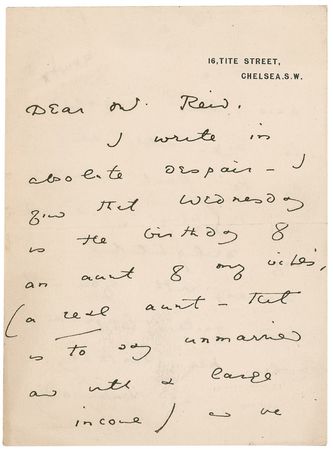 16, TITE STREET,
CHELSEA. S.W.
Dear Mr. Reid,
I write in
absolute despair – I
find that Wednesday
is the birthday of
an aunt of my wife's,
(a real aunt – that
is to say unmarried
and with a large
income) and we